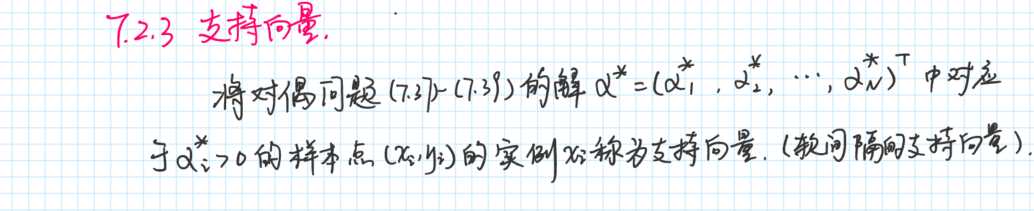 7.2.3 支持向量.
将对偶问题(7.37)-(7.39)的解 α* = (α₁*, α₂*, ⋯, α_N*)ᵀ 中对应
于αᵢ*>0的样本点(xᵢ,yᵢ)的实例xᵢ称为支持向量.(软间隔的支持向量).